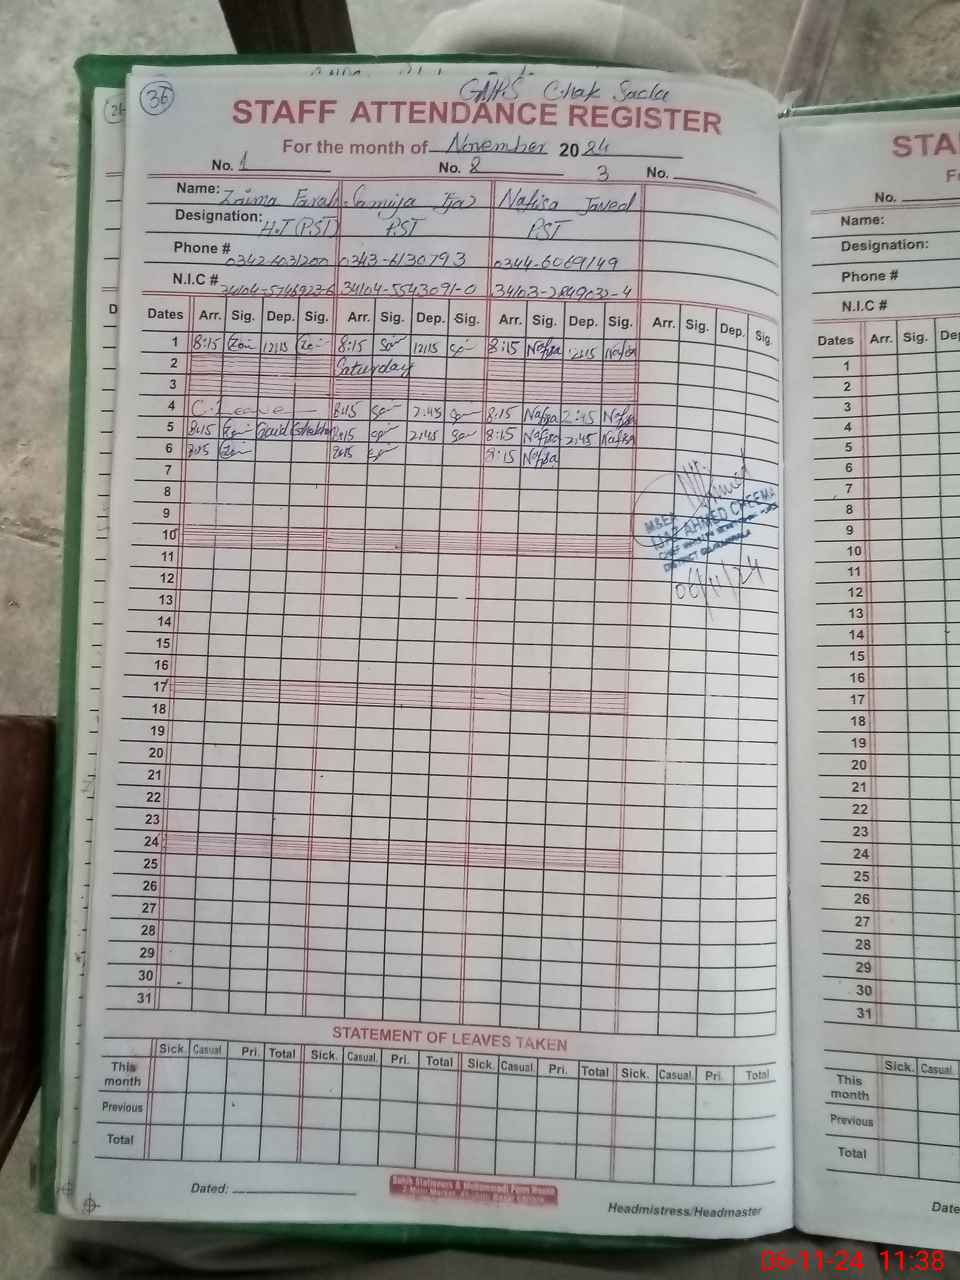 36
STAFF ATTENDANCE REGISTER
For the month of November 2024
No. 1 No. 2 3 No.
Name: Zaima Farah Samiya Ijaz Nafisa Javed
Designation: H.T (PST) PST PST
Phone # 0342-6031200 0343-6130793 0344-6069149
N.I.C # 34104-5746923-6 34104-5543091-0 34103-2849032-4
Dates Arr. Sig. Dep. Sig. Arr. Sig. Dep. Sig. Arr. Sig. Dep. Sig. Arr. Sig. Dep. Sig.
1 8:15 12:15 8:15 12:15 8:15 Nafisa 12:15 Nafisa
2 Saturday
3
4 C. Leave 8:15 2:45 8:15 Nafisa 2:45 Nafisa
5 8:15 8:15 2:45 8:15 Nafisa 2:45 Nafisa
6 8:15 8:15 8:15 Nafisa
7
8
9
10
11
12
13
14
15
16
17
18
19
20
21
22
23
24
25
26
27
28
29
30
31
AHMED CHEEMA
06/11/24
STATEMENT OF LEAVES TAKEN
Sick. Casual Pri. Total Sick. Casual. Pri. Total Sick. Casual. Pri. Total Sick. Casual. Pri. Total
This month
Previous
Total
Dated:
Headmistress/Headmaster
STA
No.
Name:
Designation:
Phone #
N.I.C #
Dates Arr. Sig.
1
2
3
4
5
6
7
8
9
10
11
12
13
14
15
16
17
18
19
20
21
22
23
24
25
26
27
28
29
30
31
Sick. Casual.
This month
Previous
Total
06-11-24 11:38